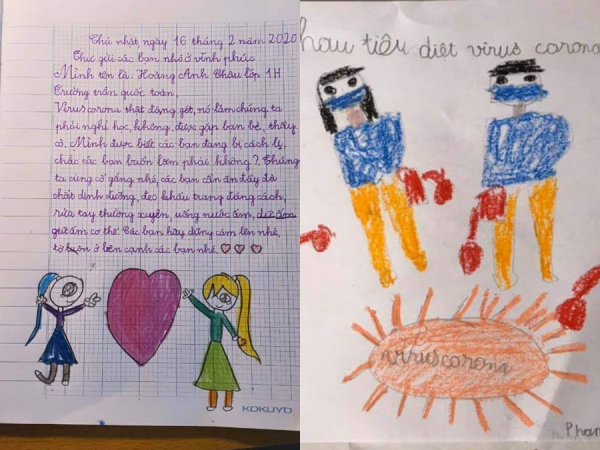 Chủ nhật, ngày 16 tháng 2 năm 2020
Thư gửi các bạn nhỏ ở vĩnh phúc
Mình tên là: Hoàng Anh Châu lớp 1H
Trường trần quốc toản,
Virus corona thật đáng gét, nó làm chúng ta
phải nghỉ học, không được gặp bạn bè, thầy
cô. Mình được biết các bạn đang bị cách ly,
chắc các bạn buồn lắm phải không? Chúng
ta cùng cố gắng nhé, các bạn cần ăn đầy đủ
chất dinh dưỡng, đeo khẩu trang đúng cách,
rửa tay thường xuyên, uống nước ấm,
giữ ấm cơ thể. Các bạn hãy dũng cảm lên nhé,
tớ luôn ở bên cạnh các bạn nhé.
KOKUYO
hau tiêu diệt virus corona
virus corona
Phan